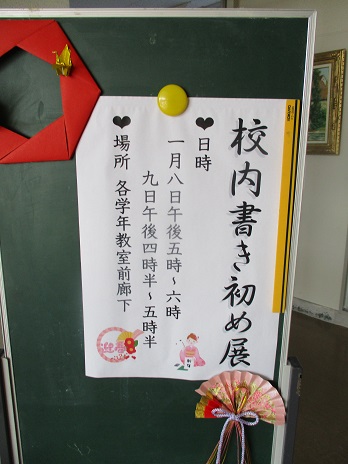 校内書き初め展
♥日時
一月八日午後五時～六時
九日午後四時半～五時半
♥場所 各学年教室前廊下
迎春